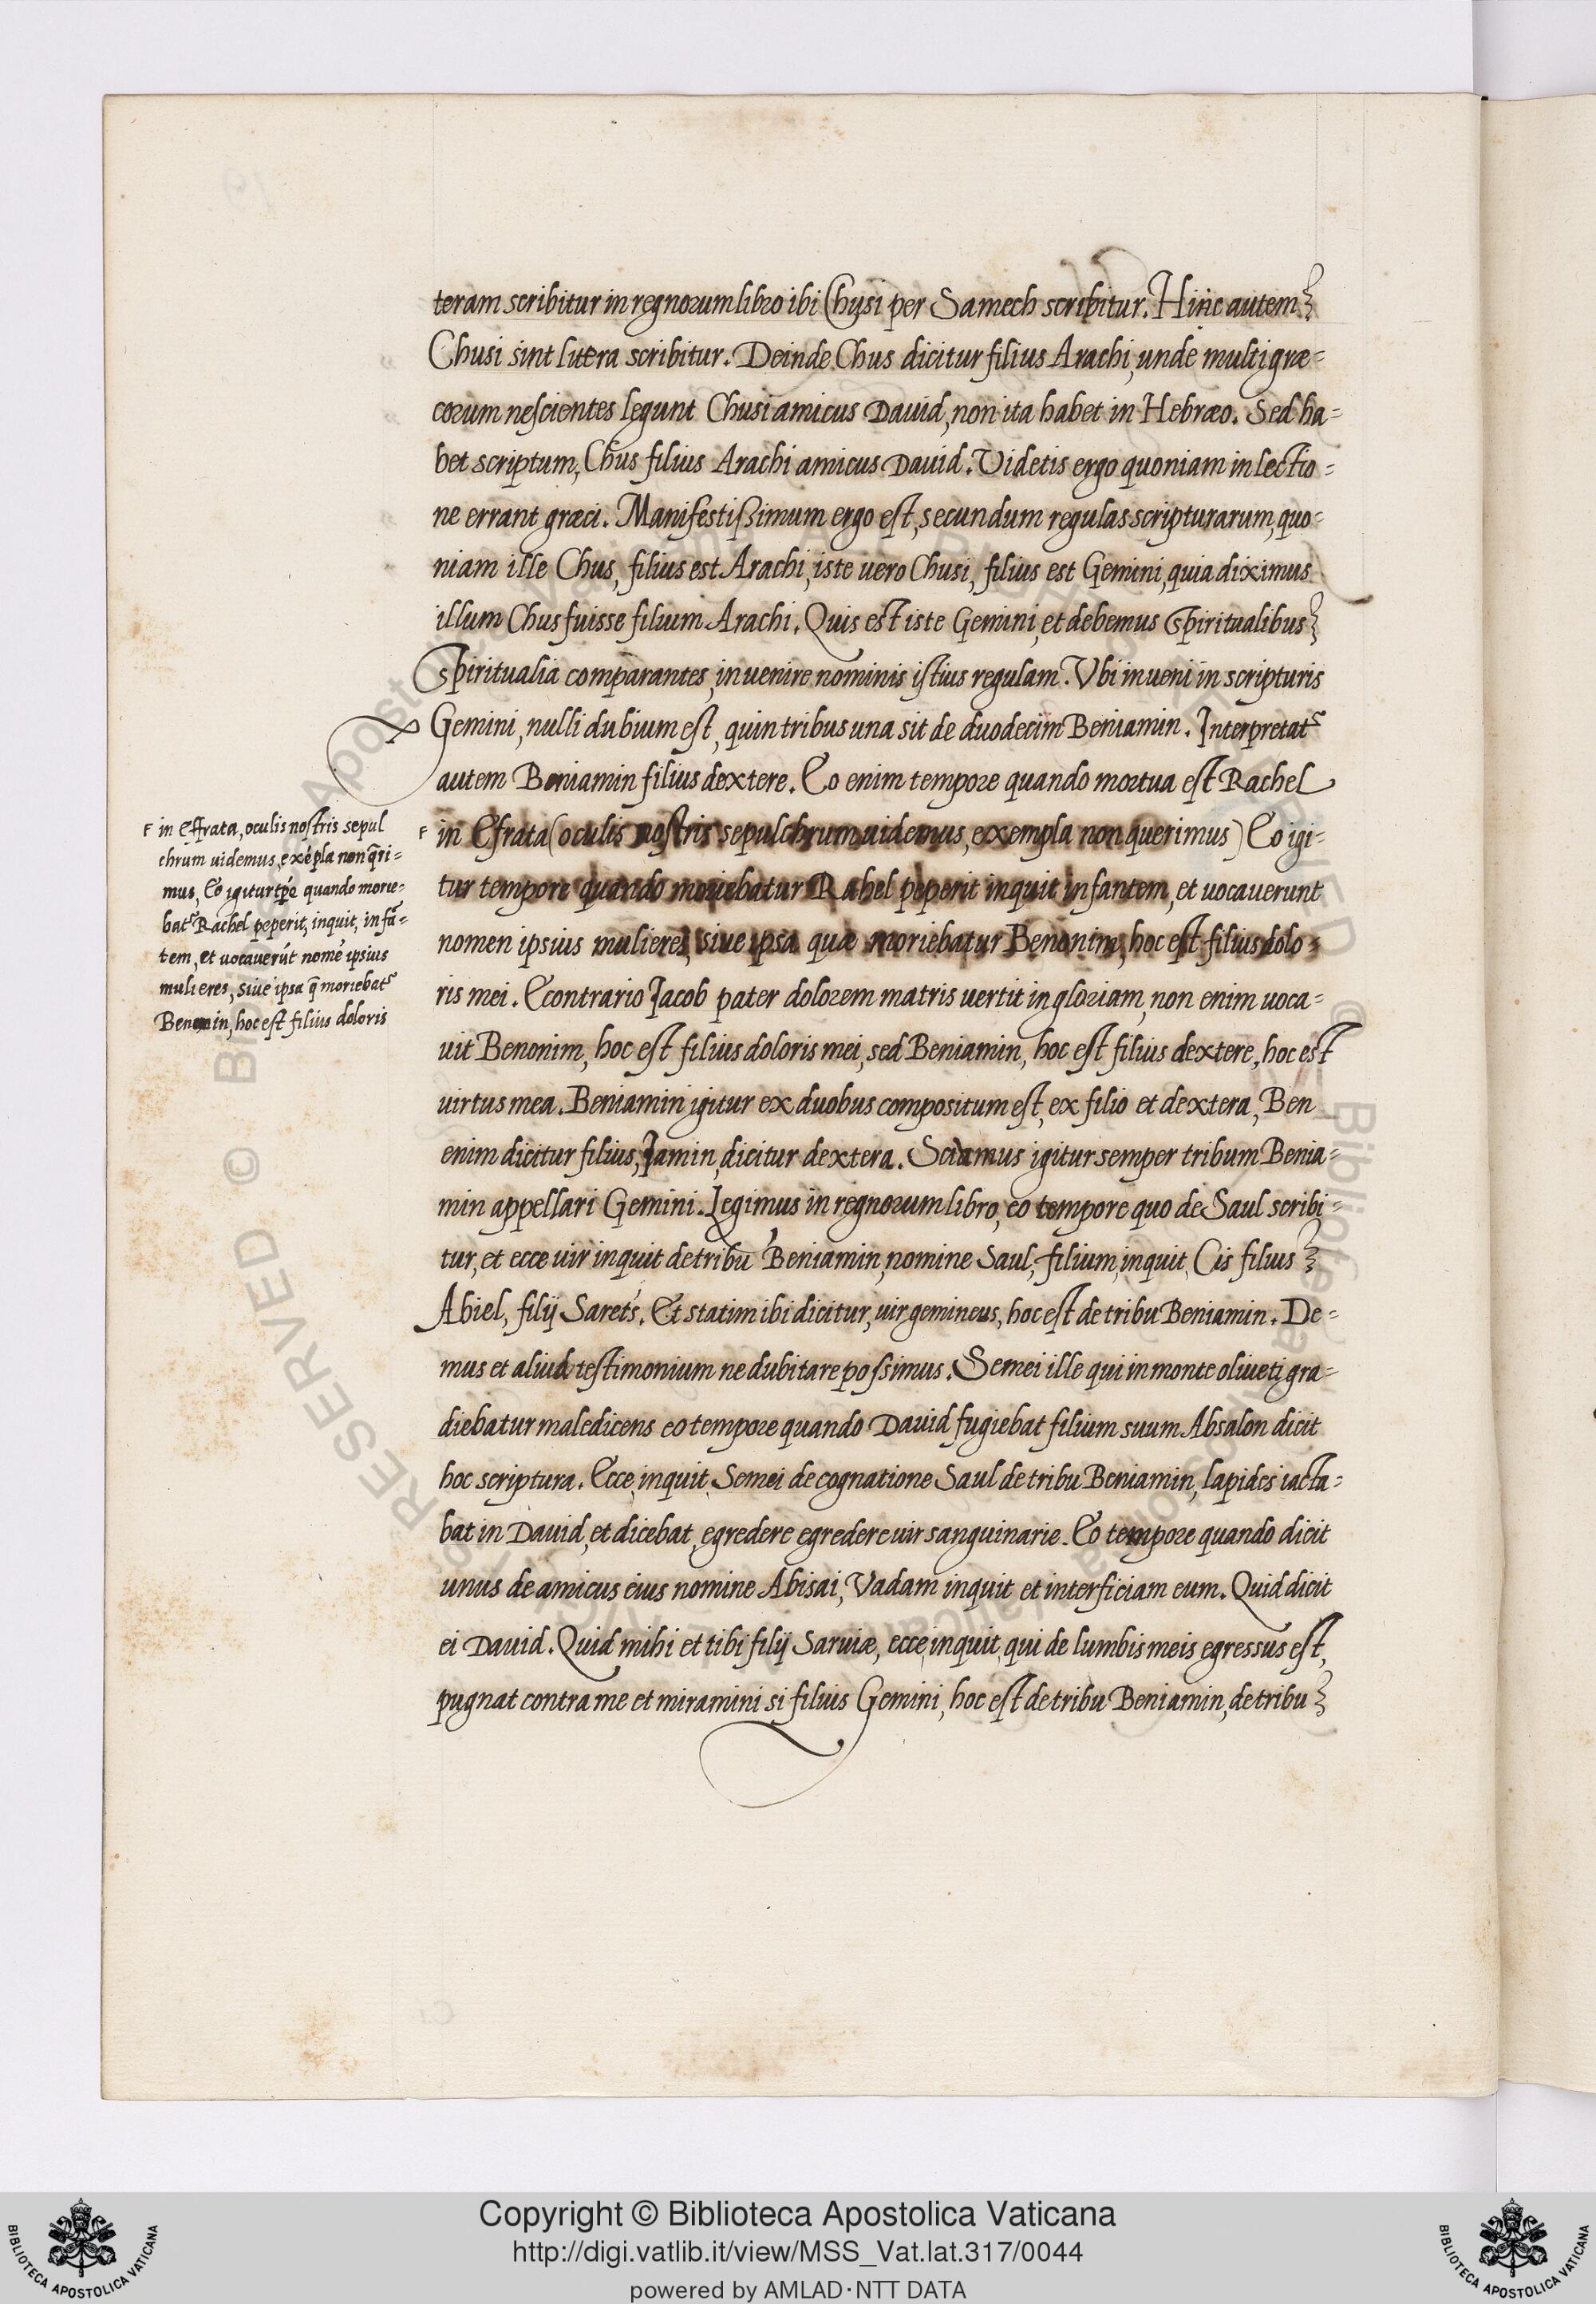 teram scribitur in regnorum libro ibi Chusi per Samech scribitur. Hinc autem
Chusi sint litera scribitur. Deinde Chus dicitur filius Arachi, unde multi græ=
corum nescientes legunt Chusi amicus David, non ita habet in Hebræo. Sed ha=
bet scriptum, Chus filius Arachi amicus David. Videtis ergo quoniam in lectio=
ne errant græci. Manifestißimum ergo est, secundum regulas scripturarum, quo=
niam ille Chus, filius est Arachi, iste uero Chusi, filius est Gemini, quia diximus
illum Chus fuisse filium Arachi. Quis est iste Gemini, et debemus Spiritualibus
Spiritualia comparantes, inuenire nominis istius regulam. Vbi inueni in scripturis
Gemini, nulli dubium est, quin tribus una sit de duodecim Beniamin. Interpretatᷣ
autem Beniamin filius dextere. Eo enim tempore quando mortua est Rachel
F in Efrata (oculis nostris sepulchrum uidemus, exempla non querimus) Eo igi-
tur tempore quando moriebatur Rahel peperit inquit infantem, et uocauerunt
nomen ipsius mulieres, siue ipsa quæ moriebatur Benonim, hoc est filius dolo=
ris mei. Econtrario Jacob pater dolorem matris uertit in gloriam, non enim uoca=
uit Benonim, hoc est filius doloris mei, sed Beniamin, hoc est filius dextere, hoc est
uirtus mea. Beniamin igitur ex duobus compositum est, ex filio et dextera, Ben
enim dicitur filius, Jamin, dicitur dextera. Sciamus igitur semper tribum Benia=
min appellari Gemini. Legimus in regnorum libro, eo tempore quo de Saul scribi=
tur, et ecce uir inquit de tribu Beniamin, nomine Saul, filium, inquit, Cis filius
Abiel, filij Sarets. Et statim ibi dicitur, uir gemineus, hoc est de tribu Beniamin. De=
mus et aliud testimonium ne dubitare possimus. Semei ille qui in monte oliueti gra=
diebatur maledicens eo tempore quando David fugiebat filium suum Absalon dicit
hoc scriptura. Ecce, inquit, Semei de cognatione Saul de tribu Beniamin, lapides iacta=
bat in David, et dicebat, egredere egredere uir sanguinarie. Eo tempore quando dicit
unus de amicus eius nomine Abisai, Vadam inquit et interficiam eum. Quid dicit
ei David. Quid mihi et tibi filij Saruiæ, ecce, inquit, qui de lumbis meis egressus est,
pugnat contra me et miramini si filius Gemini, hoc est de tribu Beniamin, de tribu
F in Effrata, oculis nostris sepul
chrum uidemus, exẽpla non q̃ri=
mus, Eo igitur tp̃e quando morie=
batᷣ Rachel peperit, inquit, infã=
tem, et uocauerũt nomẽ ipsius
mulieres, siue ipsa q̃ moriebatᷣ
Benonin, hoc est filius doloris
Copyright © Biblioteca Apostolica Vaticana
http://digi.vatlib.it/view/MSS_Vat.lat.317/0044
powered by AMLAD·NTT DATA
BIBLIOTECA APOSTOLICA VATICANA
BIBLIOTECA APOSTOLICA VATICANA